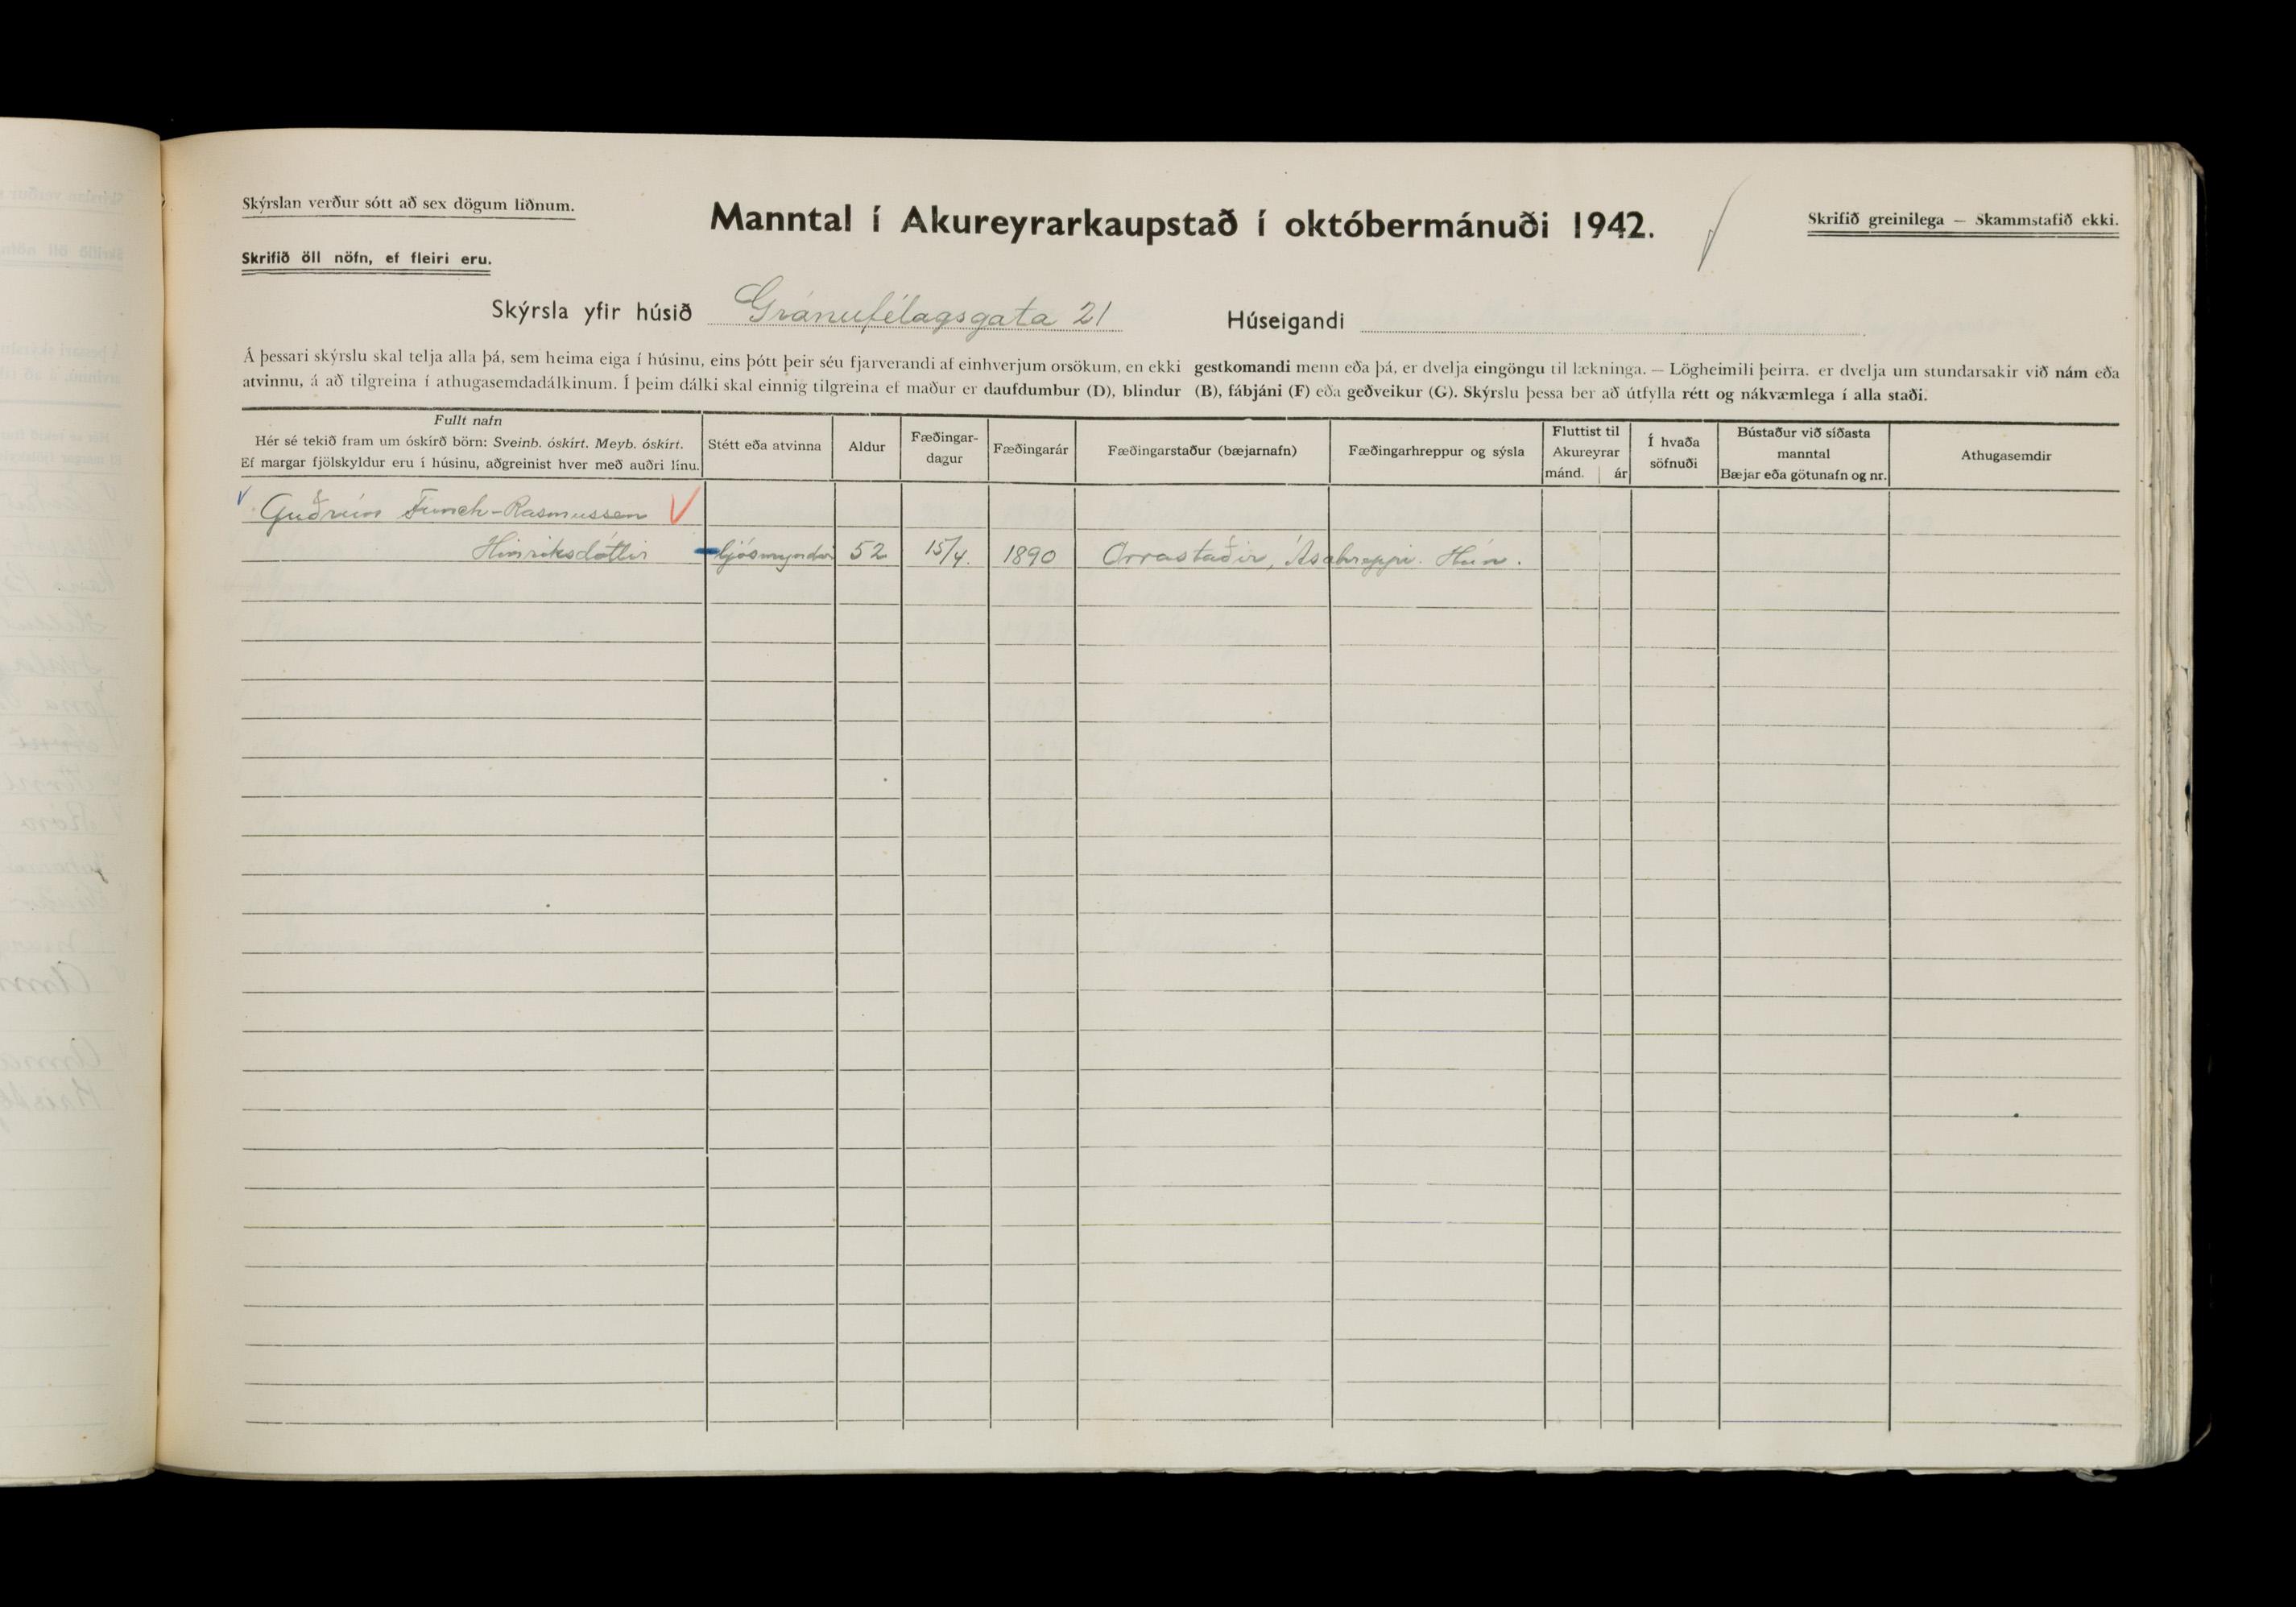 Skýrslan verður sótt að sex dögum liðnum.
Manntal í Akureyrarkaupstað í októbermánuði 1942.
Skrifið greinilega — Skammstafið ekki.
Skrifið öll nöfn, ef fleiri eru.
Skýrsla yfir húsið Gránufélagsgata 21 Húseigandi
Á þessari skýrslu skal telja alla þá, sem heima eiga í húsinu, eins þótt þeir séu fjarverandi af einhverjum orsökum, en ekki gestkomandi menn eða þá, er dvelja eingöngu til lækninga. — Lögheimili þeirra. er dvelja um stundarsakir við nám eða
atvinnu, á að tilgreina í athugasemdadálkinum. Í þeim dálki skal einnig tilgreina ef maður er daufdumbur (D), blindur (B), fábjáni (F) eða geðveikur (G). Skýrslu þessa ber að útfylla rétt og nákvæmlega í alla staði.
Fullt nafn
Hér sé tekið fram um óskírð börn: Sveinb. óskírt. Meyb. óskírt.
Ef margar fjölskyldur eru í húsinu, aðgreinist hver með auðri línu.
Stétt eða atvinna
Aldur
Fæðingar-
dagur
Fæðingarár
Fæðingarstaður (bæjarnafn)
Fæðingarhreppur og sýsla
Fluttist til
Akureyrar
mánd. ár
Í hvaða
söfnuði
Bústaður við síðasta
manntal
Bæjar eða götunafn og nr.
Athugasemdir
Guðrún Funch-Rasmussen
Hinriksdóttir 52 15/4. 1890 Orrastaðir, Ásahreppi. Hún.